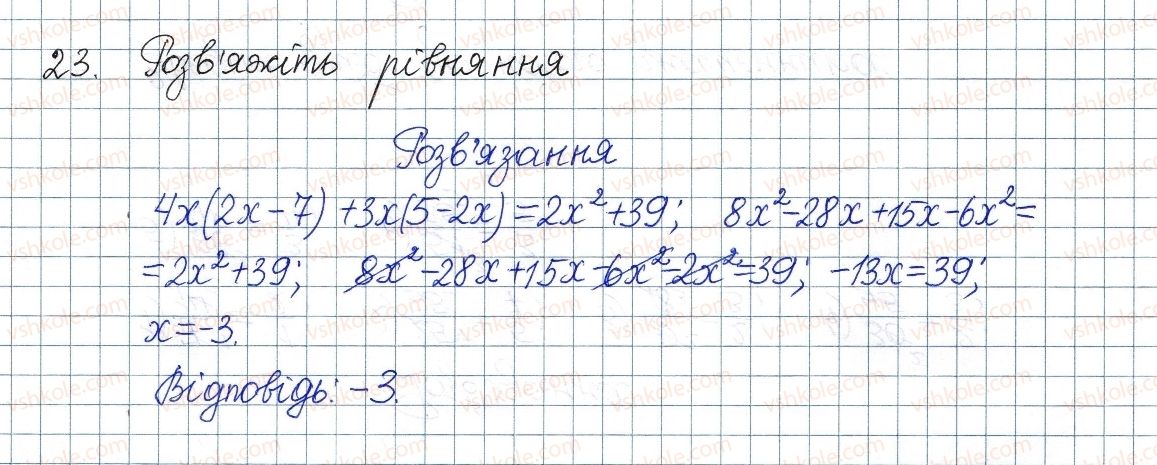 23. Розв'яжіть рівняння
Розв'язання
4x(2x-7)+3x(5-2x)=2x²+39; 8x²-28x+15x-6x²=
=2x²+39; 8x²-28x+15x-6x²-2x²=39; -13x=39;
x=-3.
Відповідь: -3.